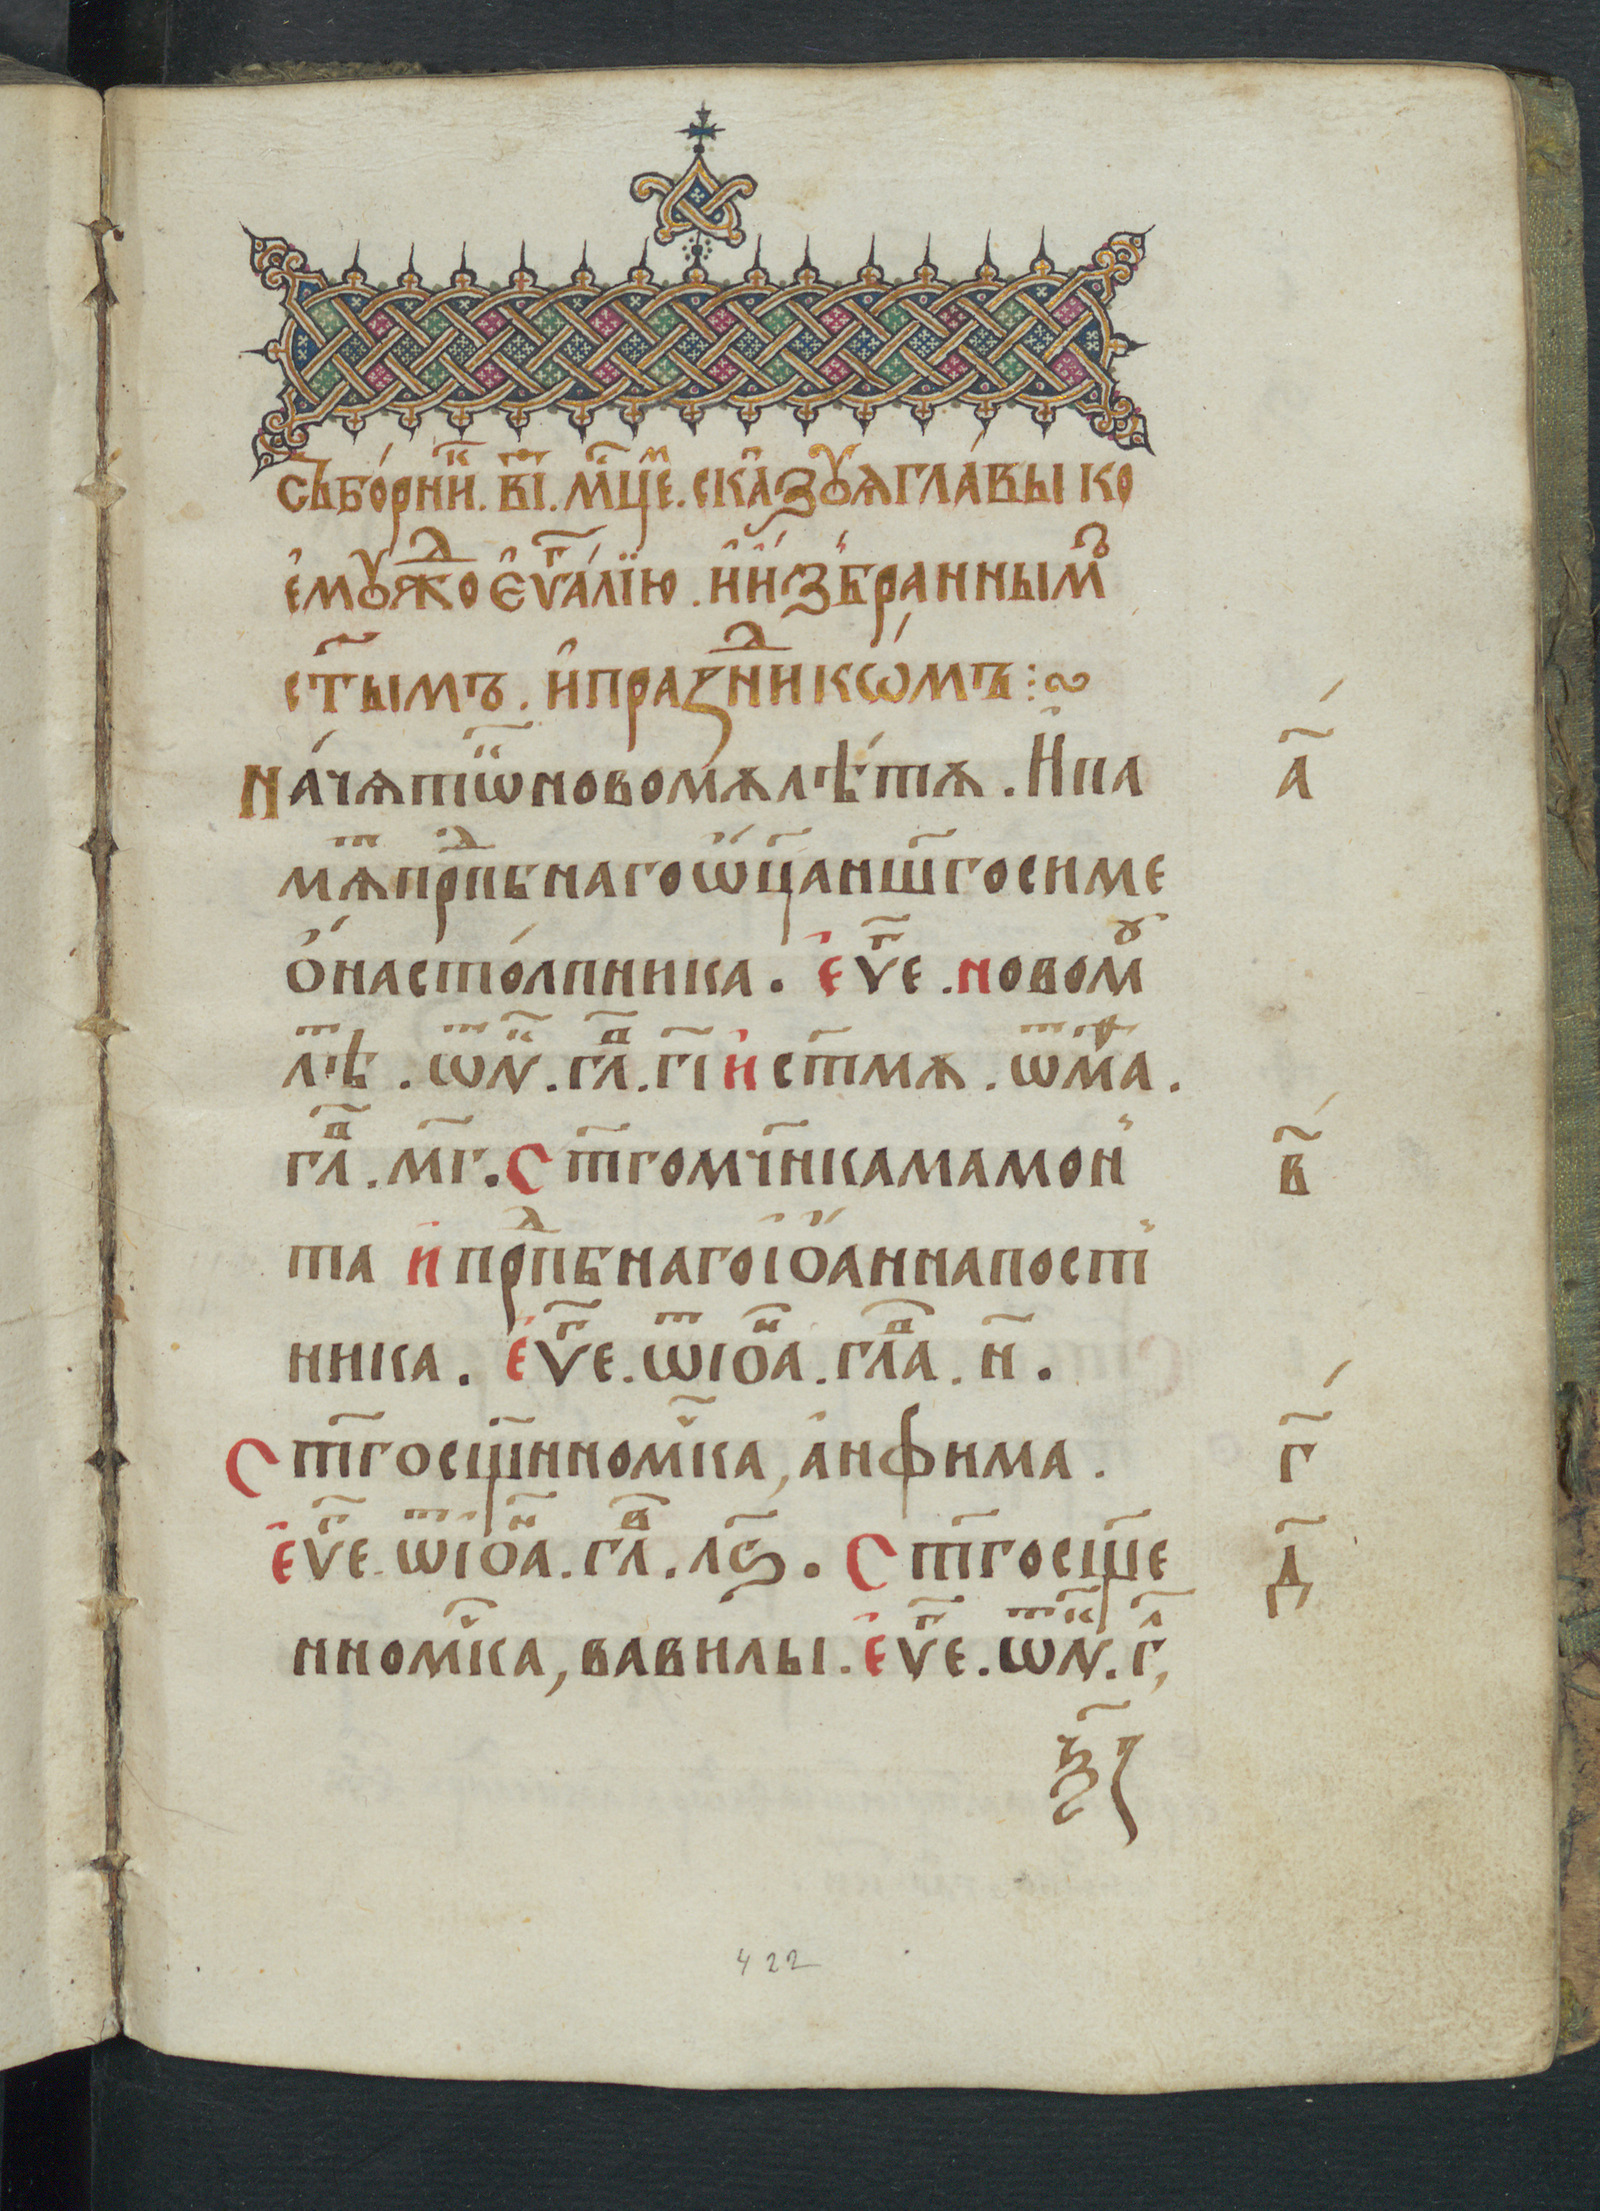 съборни́к. в҃і. мц҃емъ. сказꙋѧ гла́вы ко
емꙋждо еѵⷢ҇а́лїю. и и́збра́нным
ст҃ымъ. и празⷣникѡ́мъ :~
На́чѧткѡ новомѧ лѣ́тѧ. И па а҃
мѧⷮ прпⷣбнаго ѡц҃а нш҃го симе
о́на сто́лпника. еѵⷢ҇е. новомꙋ
лѣⷮ. ѿ лꙋⷦ. глⷡ҇. г҃і и ст҃мѧ. ѿ маⷴ.
глⷡ҇. м҃г. Ст҃го мч҃нка мамон в҃
та и прпⷣбнаго іѻанна пост
ника. еѵⷢ҇е. ѿ іѻⷩ҇а. глⷡ҇а. н҃.
Ст҃го сщ҃нномⷱ҇ка, анфима. г҃
еѵⷢ҇е. ѿ іѻⷩ҇а. глⷡ҇. л҃ѕ. Ст҃го сщ҃е д҃
нномⷱ҇ка, вавилы. еѵⷢ҇е. ѿ лꙋⷦ. гⷧ҇,
ѯ҃з
422